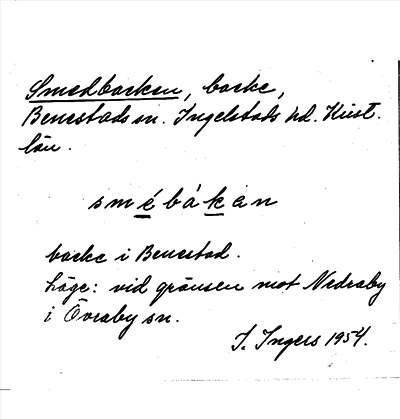 Smedbacken, backe,
Benestads sn. Ingelstads hd. Krist.
län.
smébákan
backe i Benestad.
Läge: vid gränsen mot Nedraby
i Övraby sn.
I. Ingers 1954.